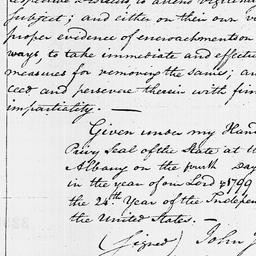 subject; and either on their own
proper evidence of encroachment on
ways, to take immediate and effectu
measures for removing the same; an
ceed and persevere therein with fir
impartiality. —
Given under my Hand
Privy Seal of the State at
Albany on the fourth Day
in the year of our Lord 1799
the 24th Year of the Indepen
the United States. —
(signed) John J